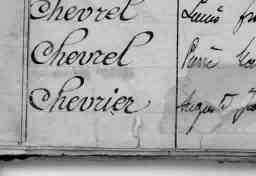 Chevrel Louis
Chevrel Pierre
Chevrier August